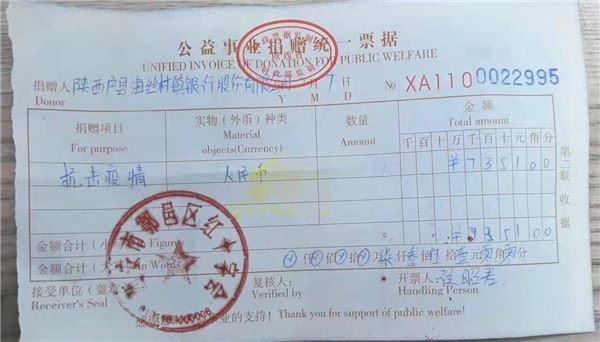 公益事业捐赠统一票据
UNIFIED INVOICE OF DONATION FOR PUBLIC WELFARE
捐赠人 陕西户县海丝村镇银行股份有限 月 7 日 № XA110 0022995
Donor Y M D
捐赠项目 实物(外币)种类 数量 金额
For purpose Material objects(Currency) Amount Total amount
千百十万千百十元角分
抗击疫情 人民币 ¥735100
¥735100
金额合计(小 Figures
金额合计(大 in Words) 仟佰拾万柒仟叁佰 拾 元 角 分
接受单位(盖章 复核人: 开票人:
Receiver's Seal Verified by Handling Person
感谢 业的支持! Thank you for support of public welfare!
第三联 收据
市鄠邑区红十字会
财政部监制